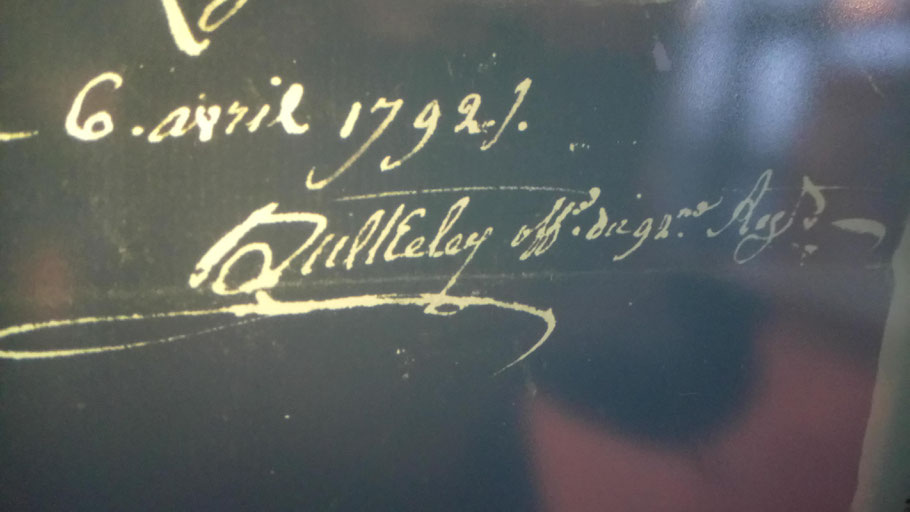 6. avril 1792./.
Bulkeley off.er du 92.me Reg.t